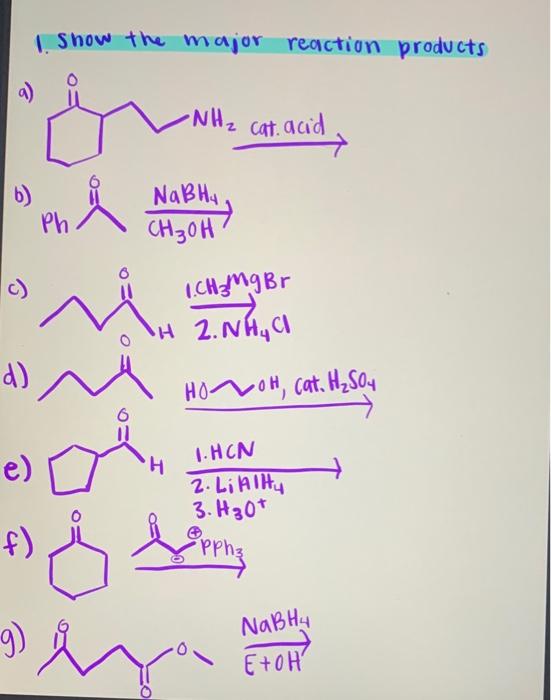 1. Show the major reaction products
a) O NH2 cat. acid
b) Ph O NaBH4 CH3OH
c) O H 1. CH3MgBr 2. NH4Cl
d) O HO OH, cat. H2SO4
e) O H 1. HCN
2. LiAlH4
3. H3O+
f) O O ⊕ PPh3 ⊖
g) O O O NaBH4 EtOH